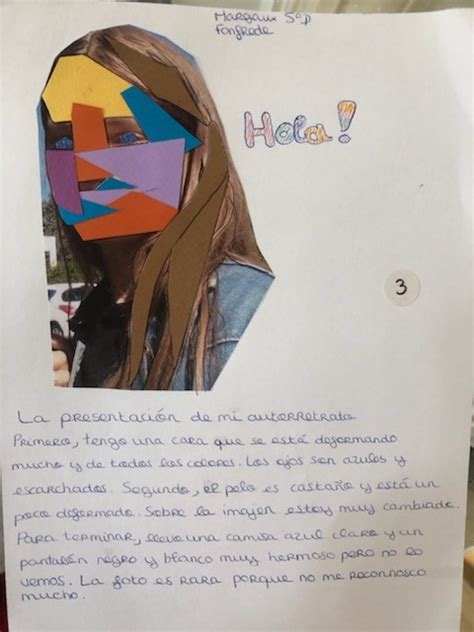 Margaux 5°P
Fonfrede
Hola!
3
La presentación de mi autorretrato
Primero, tengo una cara que se está deformando
mucho y de todos los colores. Los ojos son azules y
escarchados. Segundo, el pelo es castaño y está un
poco deformado. Sobre la imajen estoy muy cambiado.
Para terminar, llevo una camisa azul claro y un
pantalón negro y blanco muy hermoso pero no lo
vemos. La foto es rara porque no me reconnosco
mucho.